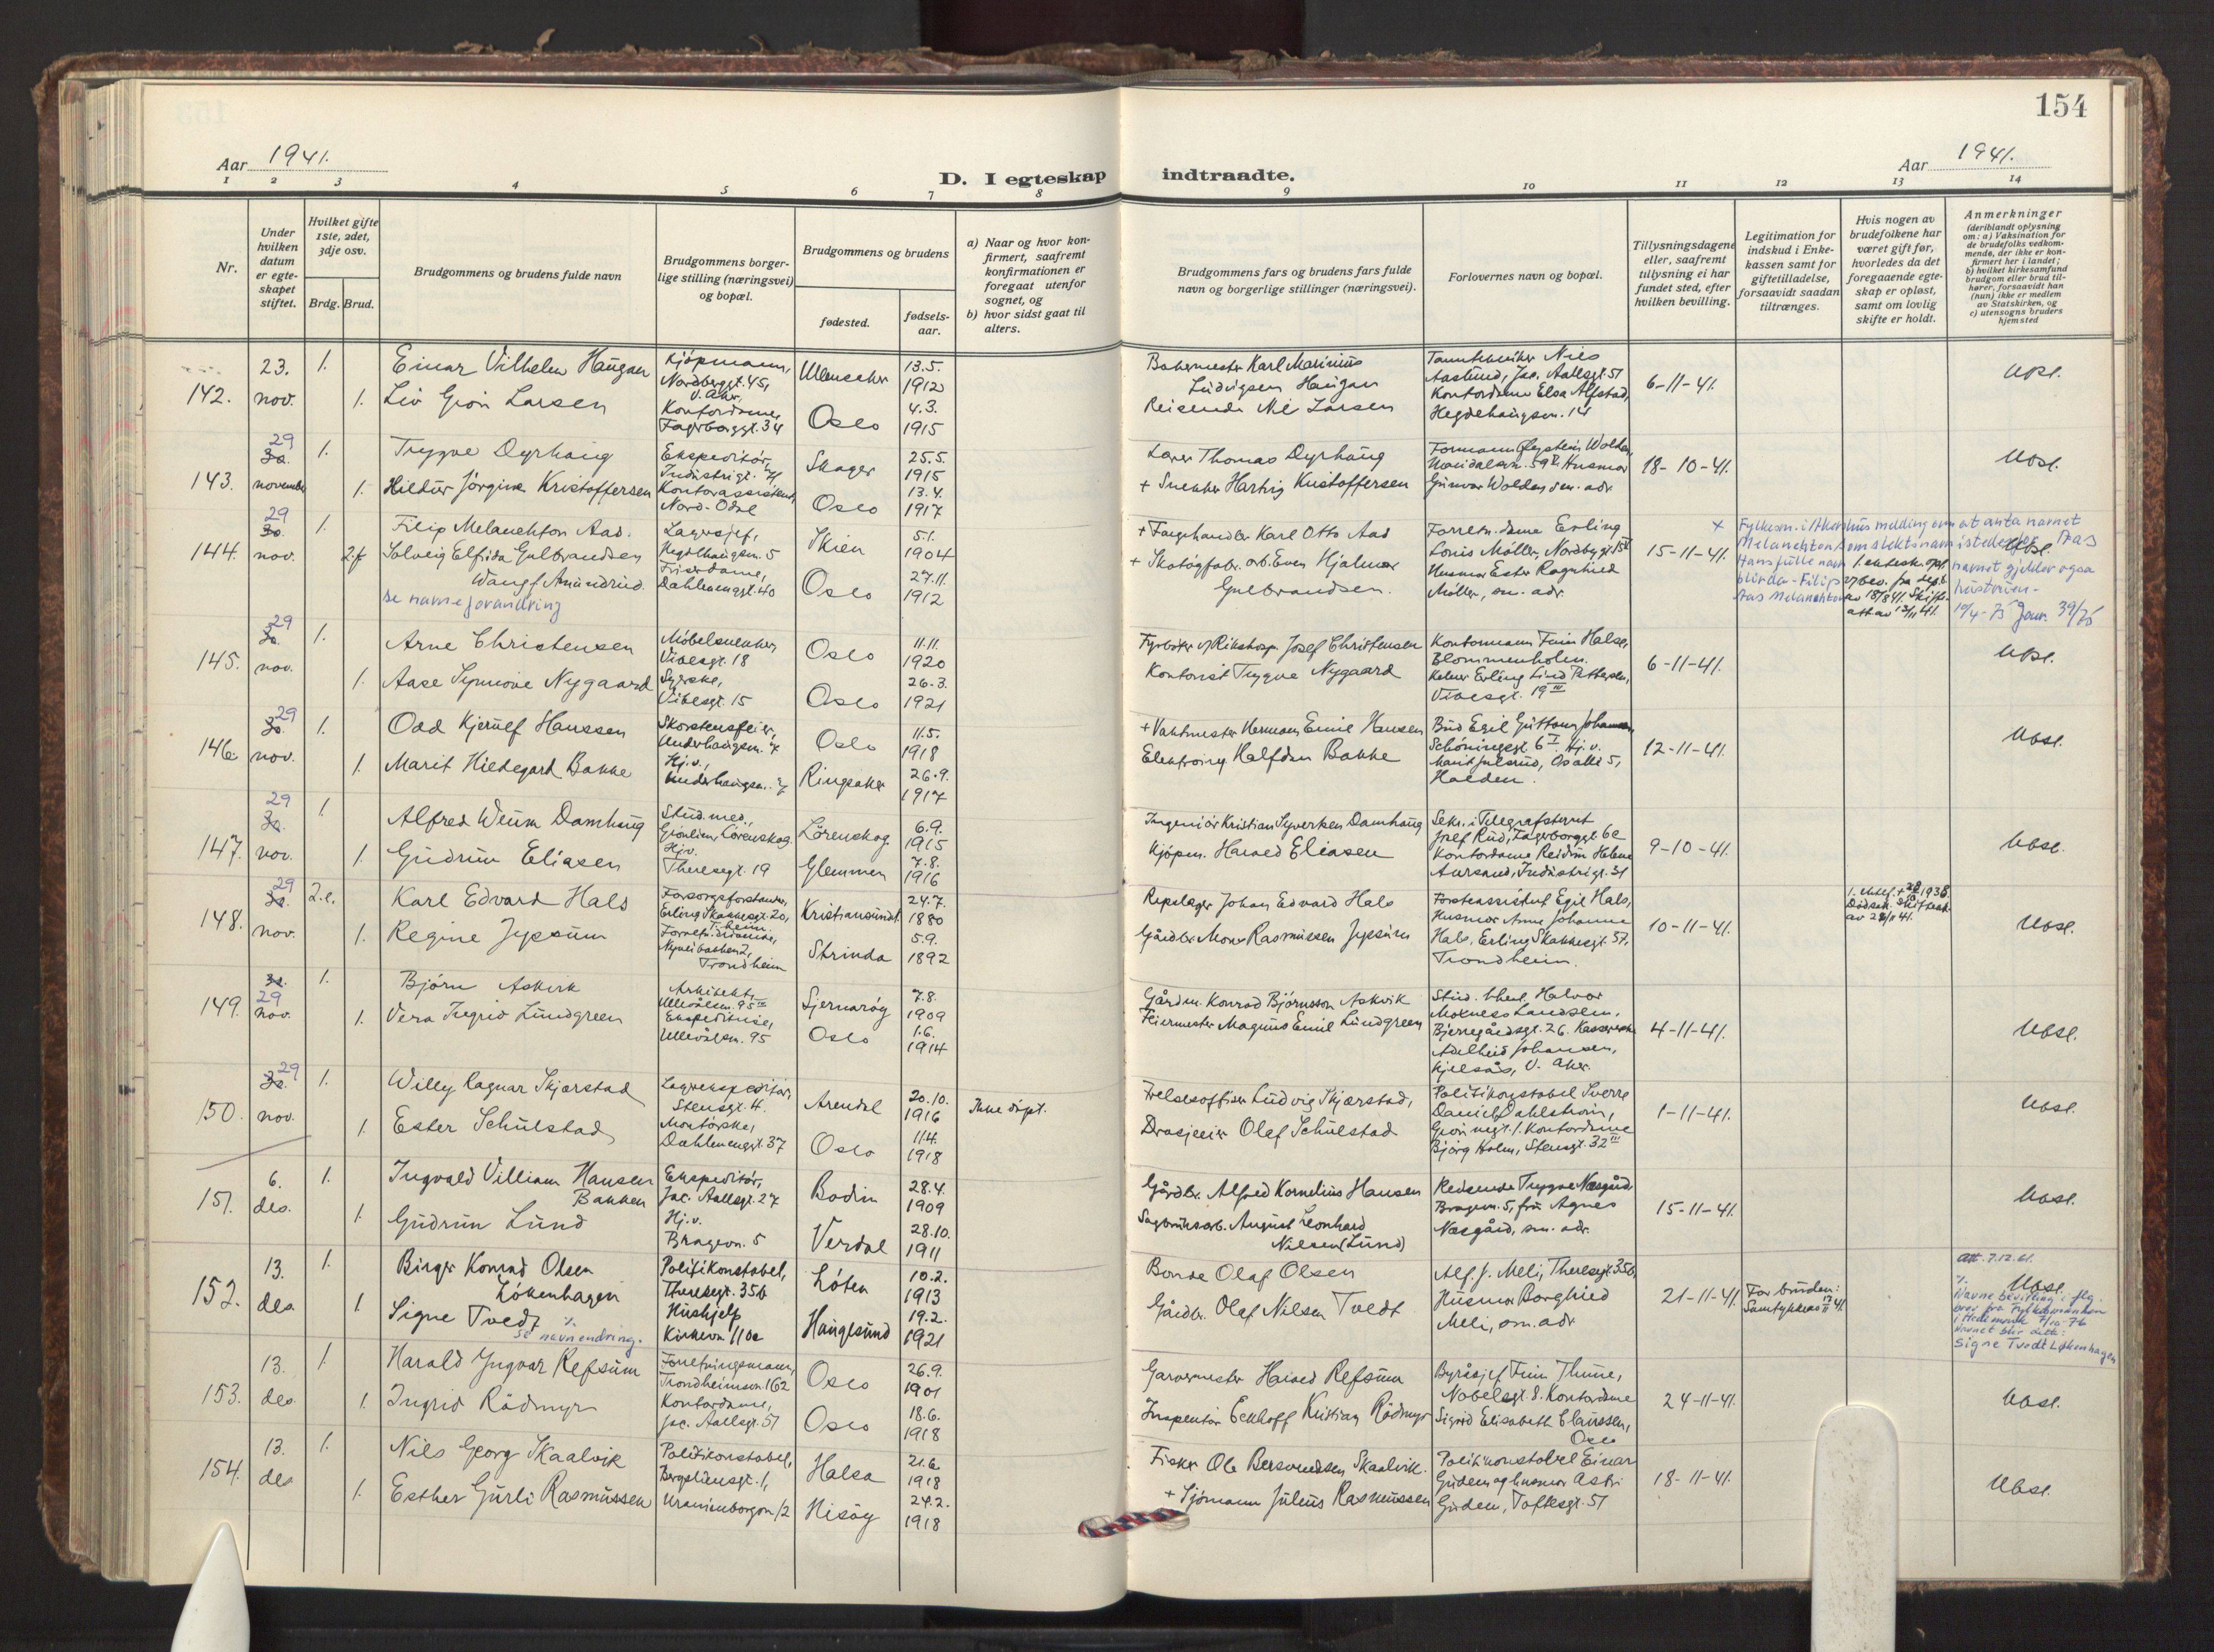 154
Aar 1941.
D. I egteskap indtraadte.
Aar 1941.
1 2 3 4 5 6 7 8 9 10 11 12 13 14
Nr.
Under hvilken datum er egteskapet stiftet.
Hvilket gifte 1ste, 2det, 3dje osv.
Brdg. Brud.
Brudgommens og brudens fulde navn
Brudgommens borgerlige stilling (næringsvei) og bopæl.
Brudgommens og brudens
fødested.
fødselsaar.
a) Naar og hvor konfirmert, saafremt konfirmationen er foregaat utenfor sognet, og
b) hvor sidst gaat til alters.
Brudgommens fars og brudens fars fulde navn og borgerlige stillinger (næringsvei).
Forlovernes navn og bopæl.
Tillysningsdagene eller, saafremt tillysning ei har fundet sted, efter hvilken bevilling.
Legitimation for indskud i Enkekassen samt for giftetilladelse, forsaavidt saadan tiltrænges.
Hvis nogen av brudefolkene har været gift før, hvorledes da det foregaaende egteskap er opløst, samt om lovlig skifte er holdt.
Anmerkninger
(deriblandt oplysning om: a) Vaksination for de brudefolks vedkommende, der ikke er konfirmert her i landet; b) hvilket kirkesamfund brudgom eller brud tilhører, forsaavidt han (hun) ikke er medlem av Statskirken, og c) utensogns bruders hjemsted
142. 23. nov.
1. Einar Vilhelm Haugan
Kjøpmann, Nordbergt. 45, V. Aker,
Ullensaker 13.5. 1912
1. Liv Gron Larsen
Kontordame, Fagerborggt. 34
Oslo 4.3. 1915
Bakermester Karl Marinius Ludvigsen Haugan
Reisende Nil Larsen
Tanntekniker Nils Aaslund, Jac. Aallsgt. 51
Kontordame Elsa Alfstad, Hegdehaugsvn. 14
6-11-41.
Ubsl.
143. 29 30. november
1. Trygve Dyrhaug
Ekspeditør, Industrigt.
25.5. 1915
1. Hildur Jörgine Kristoffersen
Kontorassistent, Nord-Odal
Oslo 13.4. 1917
Lærer Thomas Dyrhaug
+ Snekker Hartvig Kristoffersen
Formann Øystein Wolden, Husmor Gunvor Wolden sm. adr.
18-10-41.
Ubsl.
144. 29 30. nov.
1. Filip Melanchton Aas.
Lagersjef, Hegdehaugsvn. 5
Skien 5.1. 1904
2.f. Solveig Elfrida Gulbrandsen Wangf Amundrud.
Friserdame, Dahlenenggt. 40
Oslo 27.11. 1912
se navneforandring
+ Fargehandler Karl Otto Aas
+ Skotøyfabr. arb. Even Hjalmar Gulbrandsen.
Forretn.dame Erling Louis Møller,
Husmor Ester Ragnhild Møller, sm. adr.
15-11-41.
x Fylkesm. i Akershus melding om at anta navnet Melanchton som slektsnavn istedenfor Aas
Hans fulle navn blir da - Filip Aas Melanchton
navnet gjelder også hustruen -
10/4-75 Jour. 39/75
Ubsl.
145. 29 30. nov.
1. Arne Christensen
Møbelsnekker, Vibesgt. 18
Oslo 11.11. 1920
1. Aase Synnøve Nygaard
Syerske, Vibesgt. 15
Oslo 26.3. 1921
Fyrbøter v/ Rikshosp. Josef Christensen
Kontorist Trygve Nygaard
Kontormann Finn Halse, Blommenholm.
Kelner Erling Lind Pettersen, Vibesgt. 19 III
6-11-41.
Ubsl.
146. 29 30. nov.
1. Odd Kjerulf Hanssen
Skorstensfeier, Underhaugsvn.
Oslo 11.5. 1918
1. Marit Hildegard Bakke
Hj.v., Underhaugsvn.
Ringsaker 26.9. 1917
+ Vaktmester Herman Emil Hansen
Elektroing. Halfdan Bakke
Bud Egil Guttorm Johansen Schøningsgt. 6 I Hj.v.
Marit Julsrud, Os allé 5, Halden.
12-11-41.
Ubsl.
147. 29 30. nov.
1. Alfred Weum Damhaug
Stud. med., Grönlien, Lörenskog.
Lörenskog. 6.9. 1915
1. Gudrun Eliasen
Hj.v. Theresegt. 19
Glemmen 7.8. 1916
Ingeniör Kristian Syversen Damhaug
Kjöpm. Harald Eliasen
Sekr. i Telegrafstyret Josef Rud, Fagerborggt. 6c
Kontordame Reidun Helene Aursand, Industrigt. 31
9-10-41.
Ubsl.
148. 29 30. nov.
2.e. Karl Edvard Hals
Forsorgsforstander, Erling Skakkesgt. 20, T.heim
Kristiansund. 24.7. 1880
1. Regine Jypsum
Trondheim
Strinda 5.9. 1892
Repslager Johan Edvard Hals
Gårdbr. Mons Rasmussen Jypsum
Forstassistent Egil Hals, Husmor Anne Johanne Hals, Erling Skakkesgt. 57, Trondheim.
10-11-41.
Ubsl.
149. 30. 29 nov.
1. Björn Askvik
Arkitekt, Ullevålsvn. 95 III
Sjernaröy 7.8. 1909
1. Vera Ingrid Lundgreen
Ekspeditrise, Ullevålsvn. 95
Oslo 1.6. 1914
Gårdm. Konrad Björnsson Askvik
Feiermester Magnus Emil Lundgreen
Stud. Halvor Mokness Landsem, Bjerregårdsgt. 26.
Adelheid Johansen, Kjelsås, V. Aker.
4-11-41.
Ubsl.
150. 29 30. nov.
1. Willy Ragnar Skjærstad
Lagerekspeditør, Stensgt. 4.
Arendal 20.10. 1916
Ikke døpt.
1. Ester Schulstad
Montørske, Dahlenenggt. 37
Oslo 11.4. 1918
Frelsesoffiser Ludvig Skjærstad,
Drosjeeier Olaf Schulstad
Politikonstabel Sverre Daniel Dahlstrøm,
Kontordame Bjørg Holm, Stensgt. 32 III
1-11-41.
Ubsl.
151. 6. des.
1. Ingvald Villiam Hansen Bakken
Ekspeditør, Jac. Aallsgt. 27
Bodin 28.4. 1909
1. Gudrun Lund
Hj.v. Bragevn. 5
Verdal 28.10. 1911
Gårdbr. Alfred Kornelius Hansen
Sagbruksarb. August Leonhard Nilsen (Lund)
Reisende Trygve Næsgård Bragevn. 5, fru Agnes Næsgård, sm. adr.
15-11-41.
Ubsl.
152. 13. des.
1. Birger Konrad Olsen Lökenhagen
Politikonstabel, Theresegt. 35b
Löten 10.2. 1913
1. Signe Tvedt
se navnendring.
Hushjelp Kirkevn. 110c
Haugesund 19.2. 1921
Bonde Olaf Olsen
Gårdbr. Olaf Nilsen Tvedt
Alf. J. Meli, Theresegt. 35b,
Husmor Borghild Meli, sm. adr.
21-11-41.
For bruden: Samtykke
att. 7.12.61.
Ubsl.
Navnebevilling i flg. brev fra Fylkesmannen i Hedemark 7/10-76
Navnet blir dette: Signe Tvedt Løkenhagen
153. 13. des.
1. Harald Ingvar Refsum
Forretningsmann, Trondheimsvn 162
Oslo 26.9. 1901
1. Ingrid Rödmyr
Kontordame, Jac. Aallsgt. 51
Oslo 18.6. 1918
Garvermester Harald Refsum
Inspektör Eckhoff Kristian Rödmyr
Byråsjef Finn Thune, Nobelsgt. 8. Kontordame Sigrid Elisabeth Claussen, Oslo
24-11-41.
Ubsl.
154. 13. des
1. Nils Georg Skaalvik
Politikonstabel, Bergsliensgt. 1,
Halsa 21.6. 1918
1. Esther Gurli Rasmussen
Uranienborgvn 12
Hisöy 24.2. 1918
Fisker Ole Bersvendsen Skaalvik.
+ Sjömann Julius Rasmussen
Politikonstabel Einar Guden og husmor Astri Guden, Toftesgt. 51
18-11-41.
Ubsl.